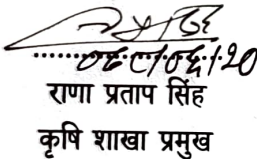 राणा प्रताप सिंह
कृषि शाखा प्रमुख